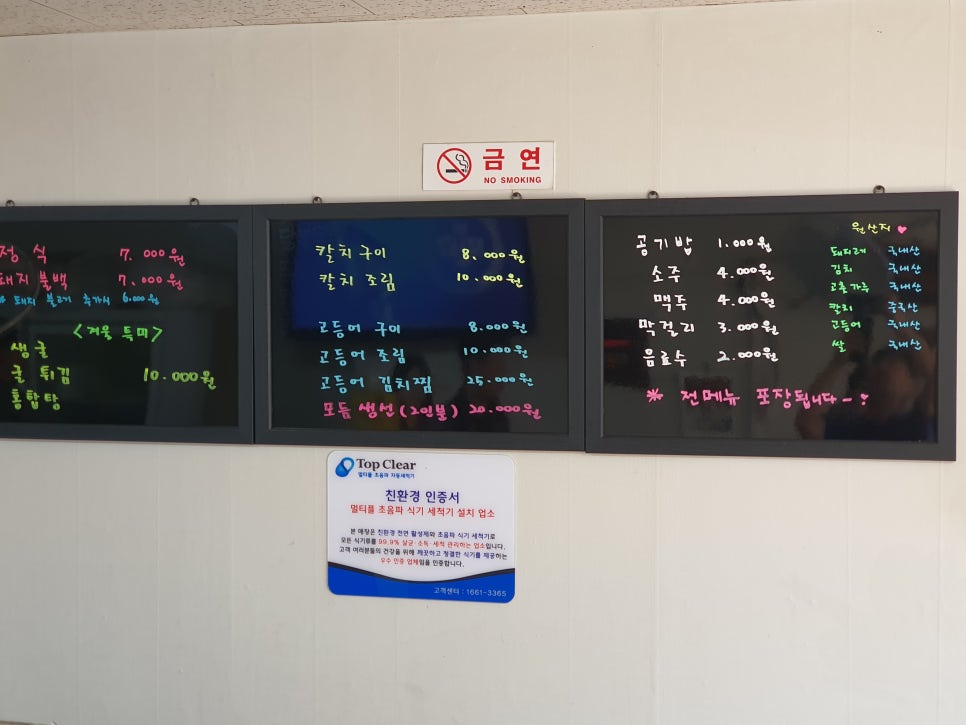 금연
NO SMOKING
정식 7.000원
돼지불백 7.000원
* 돼지 불고기 추가시 6.000원
<겨울 특미>
생굴
굴 튀김 10.000원
홍합탕
칼치구이 8.000원
칼치 조림 10.000원
고등어 구이 8.000원
고등어 조림 10.000원
고등어 김치찜 25.000원
모듬 생선(2인분) 20.000원
원산지 ♥
공기밥 1.000원
소주 4.000원
맥주 4.000원
막걸리 3.000원
음료수 2.000원
돼지고기 국내산
김치 국내산
고춧가루 국내산
칼치 중국산
고등어 국내산
쌀 국내산
* 전메뉴 포장됩니다~!
Top Clear
멀티플 초음파 자동세척기
친환경 인증서
멀티플 초음파 식기 세척기 설치 업소
본 매장은 친환경 천연 활성제와 초음파 식기 세척기로
모든 식기류를 99.9% 살균·소독·세척 관리하는 업소입니다.
고객 여러분들의 건강을 위해 깨끗하고 청결한 식기를 제공하는
우수 인증 업체임을 인증합니다.
고객센터 : 1661-3365